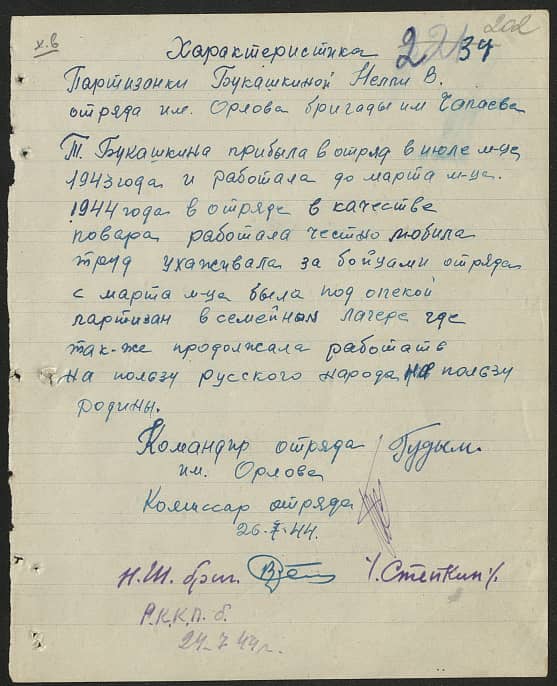 х.в
202
Характеристика
22 34
Партизанки Букашкиной Нелли В.
отряда им. Орлова бригады им Чапаева
Т. Букашкина прибыла в отряд в июле м-це
1943 года и работала до марта м-ца.
1944 года в отряде в качестве
повара работала честно любила
труд ухаживала за бойцами отряда
с марта м-ца была под опекой
партизан в семейном лагере где
так-же продолжала работать
на пользу русского народа, на пользу
родины.
Командир отряда Гудым.
им. Орлова
Комиссар отряда
26.7.44.
Н.Ш. бриг. /.Степкин/.
Р.К.К.П.б.
24.7.44 г.